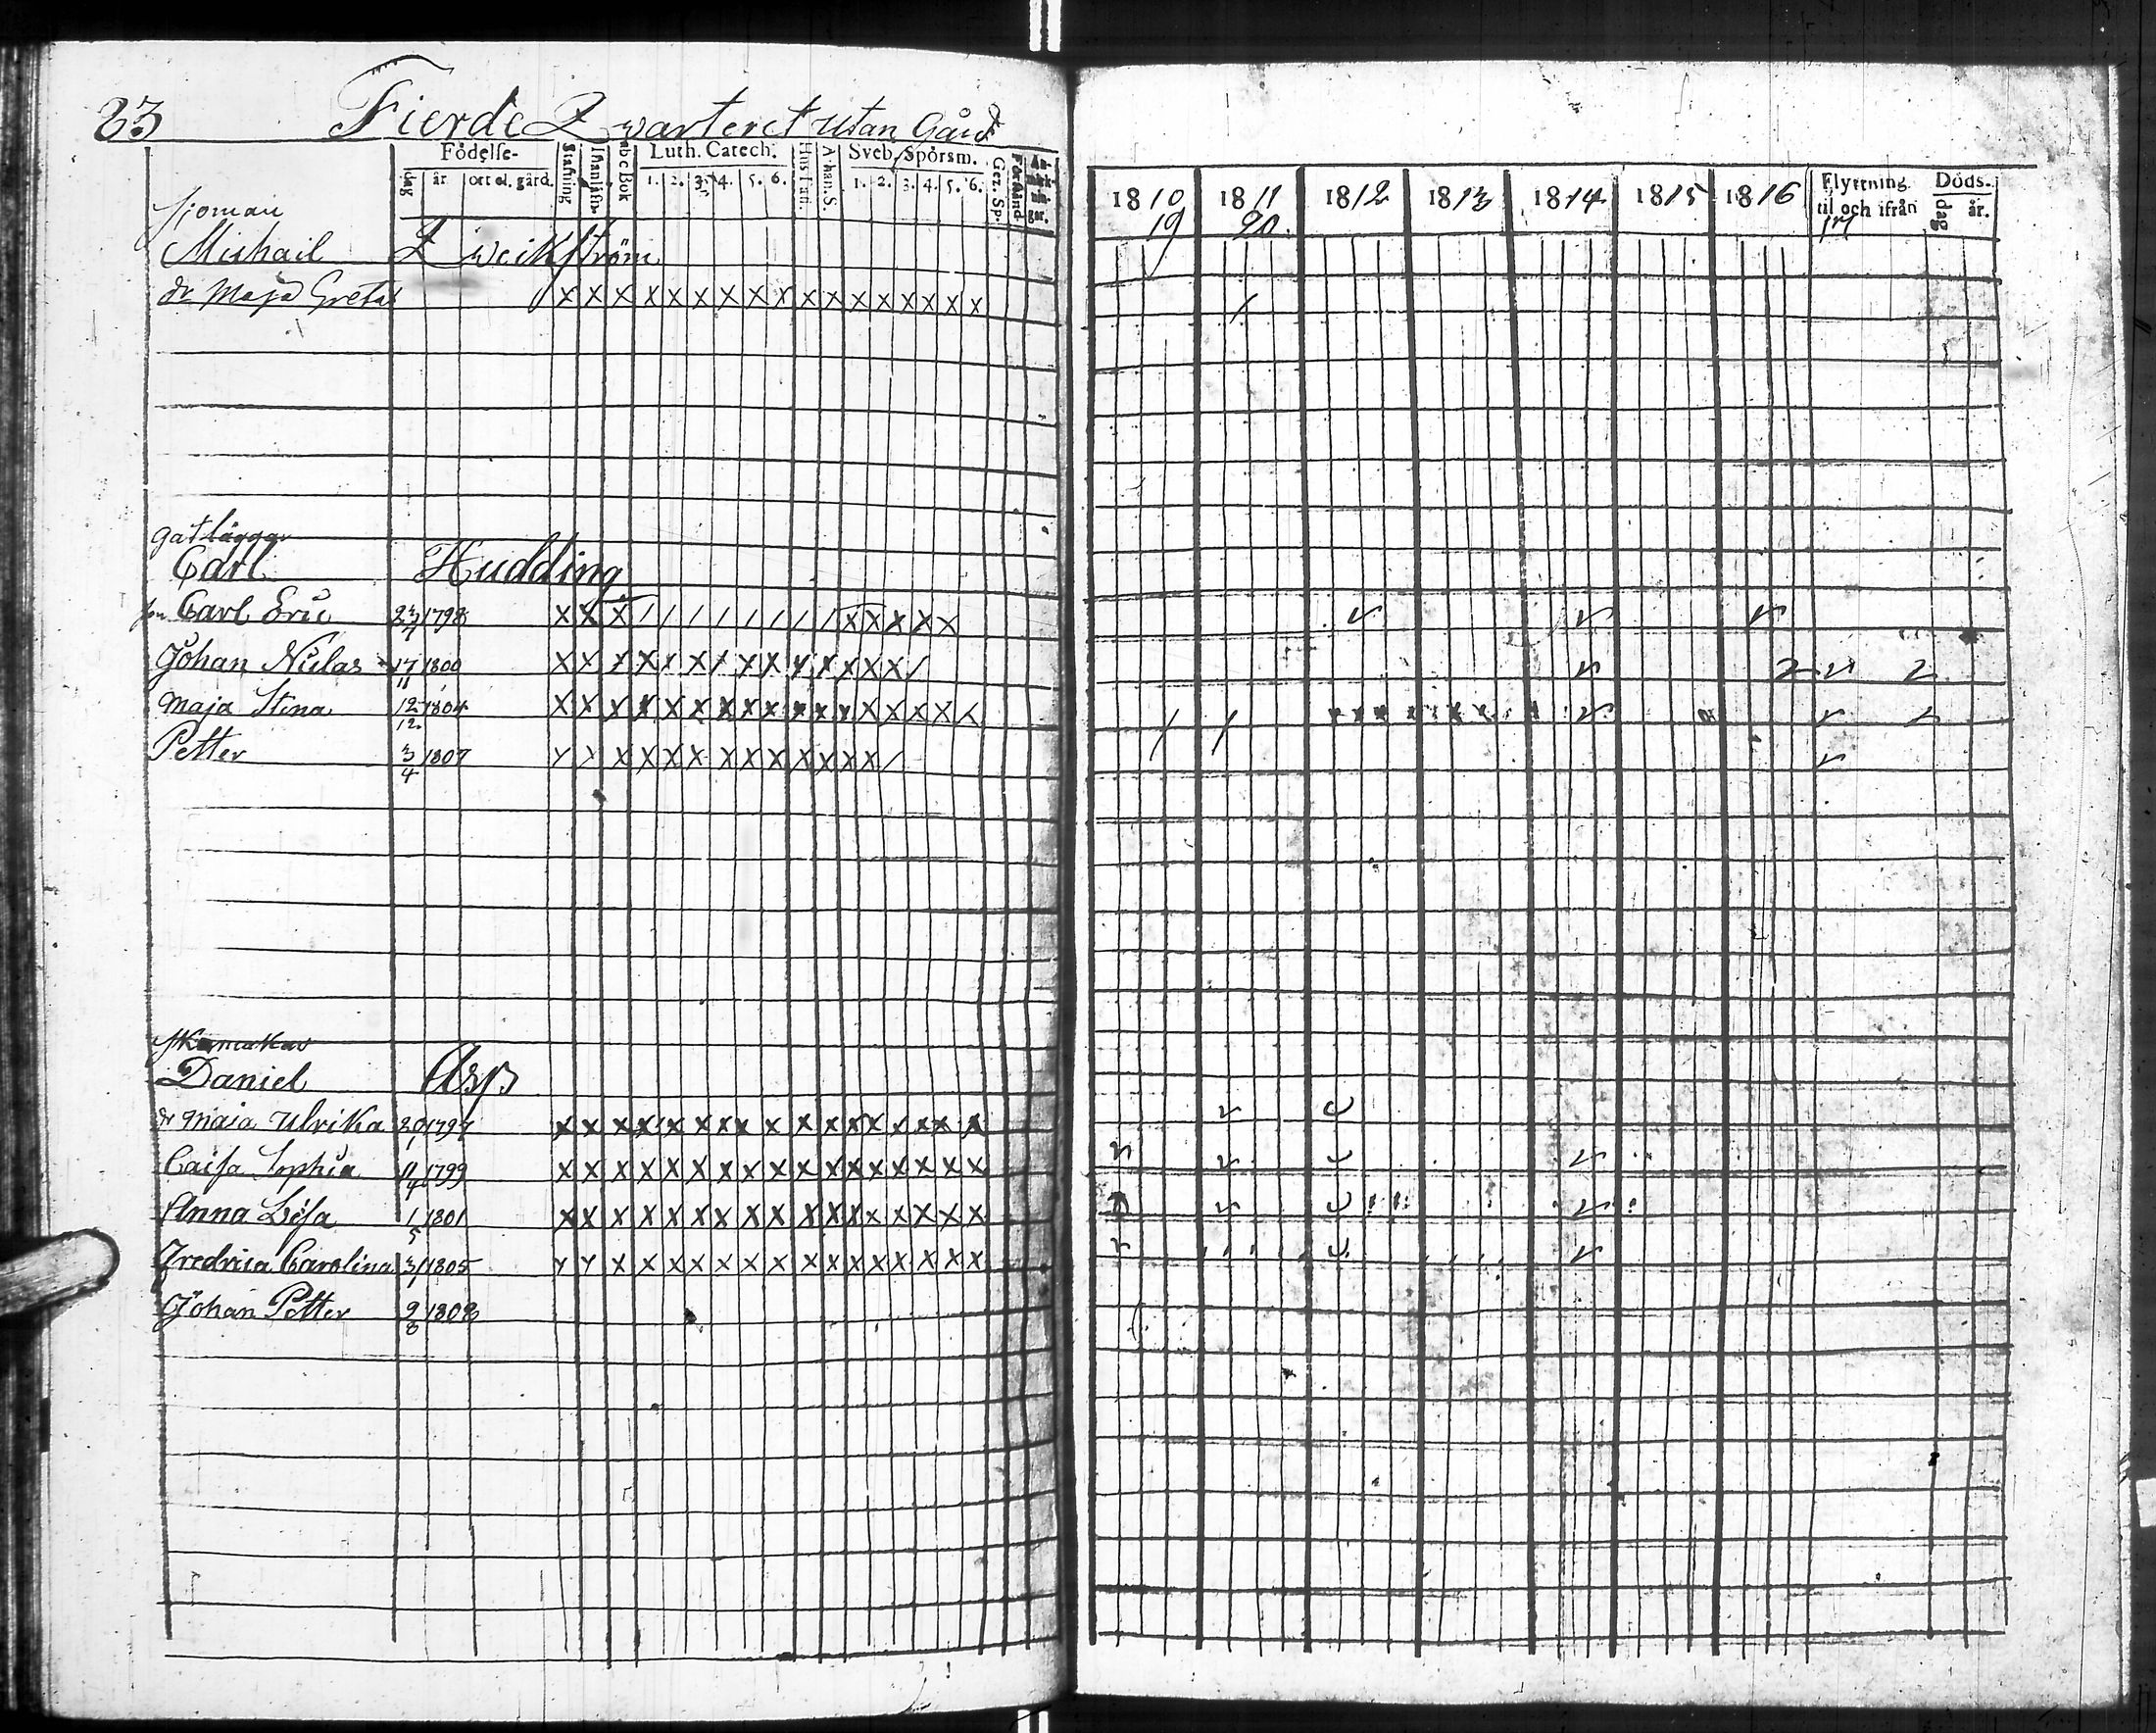 23 Fierde Qwarteret utan Gård
Födelse- Stafning Innanläsn. abc Bok Luth. Catech. Hus Tafl. Athan. S. Sveb. Spörsm. Gez. Sp. Förstånd Anmärkningar.
dag år. ort el. gård. 1. 2. 3. 4. 5. 6. 1. 2. 3. 4. 5. 6.
Sjöman
Michail Qweckström
dr Maja Greta x x x x x x x x x x x x x x x x x
gatläggar
Carl Hudding
son Carl Eric 23/7 1798 x x x / / / / / / / / x x x x x
Johan Niclas 17/11 1800 x x x x x x x x x x x x x x /
Maja Stina 12/12 1804 x x x x x x x x x x x x x x x x x
Petter 3/4 1807 x x x x x x x x x x x x x /
Skomakar
Daniel Asp
dr Maja Ulrika 20/1 1797 x x x x x x x x x x x x x x x x x
Caisa Sophia 11/4 1799 x x x x x x x x x x x x x x x x x
Anna Lisa 1/5 1801 x x x x x x x x x x x x x x x x x
Fredrica Carolina 31/1 1805 x x x x x x x x x x x x x x x x x
Johan Petter 9/8 1808
1810 1811 1812 1813 1814 1815 1816 Flyttning til och ifrån Döds- dag år.
19 20 17